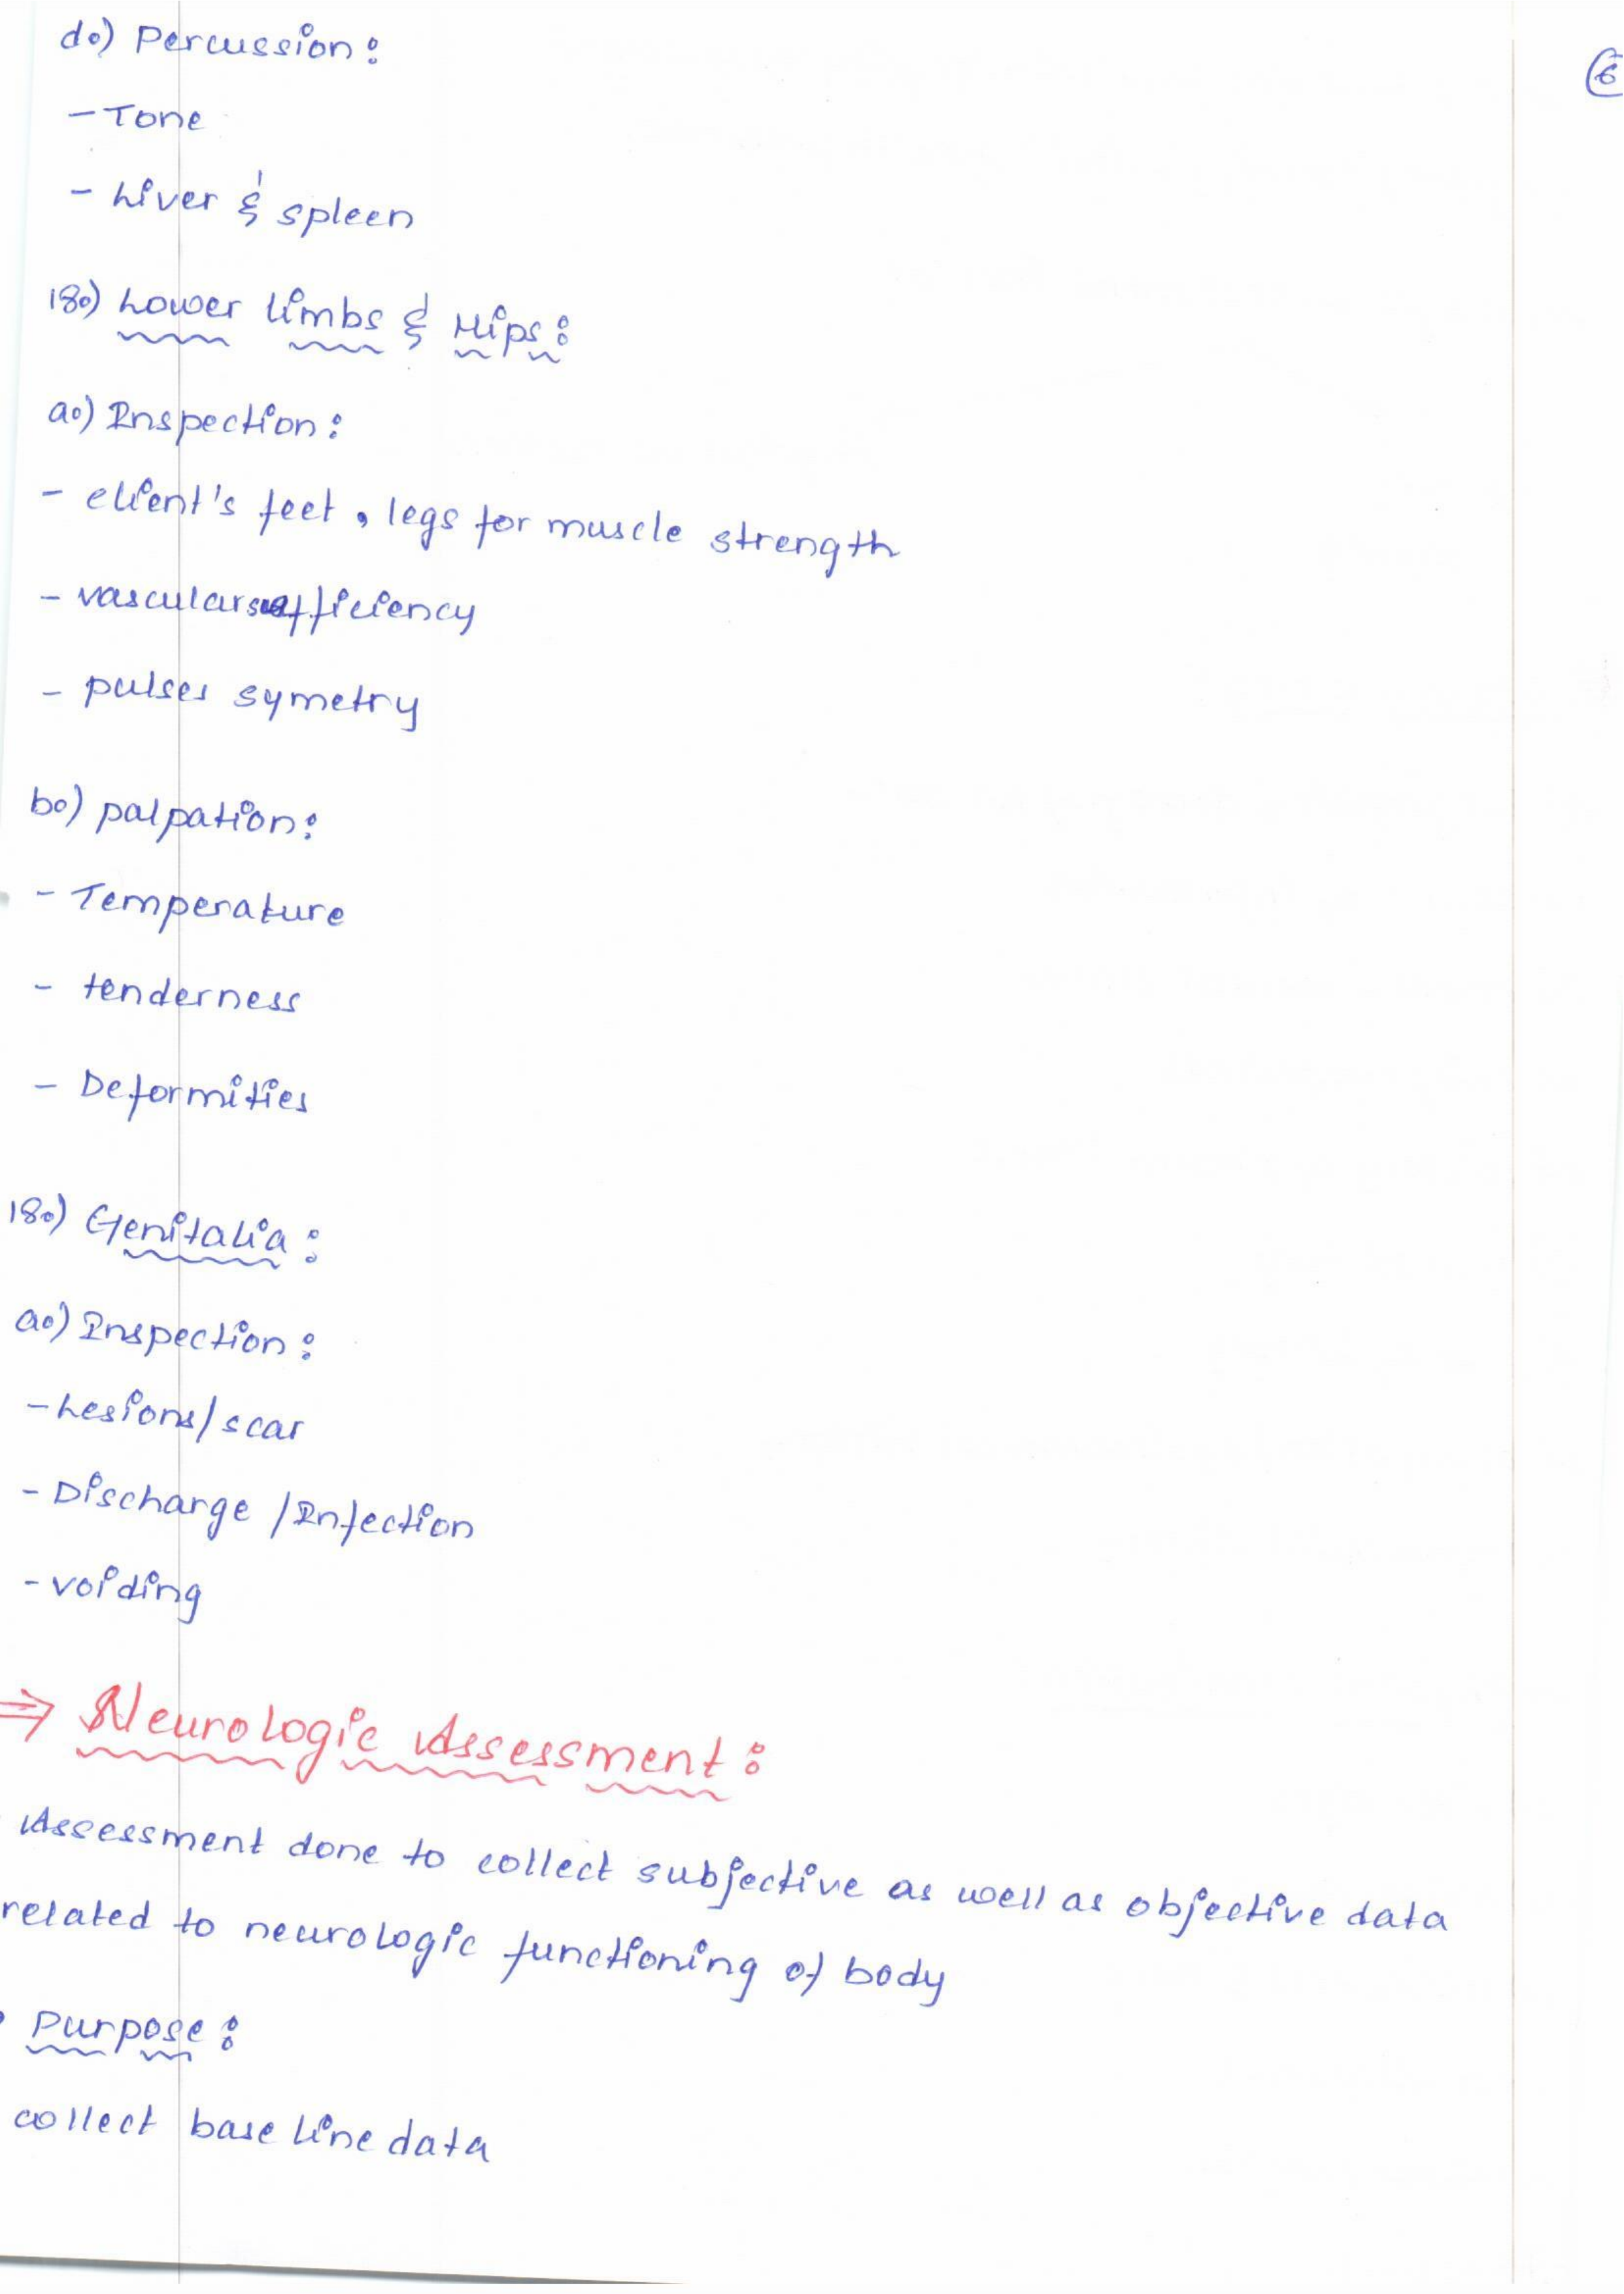 d.) Percussion :
6
- Tone
- Liver & spleen
18.) Lower limbs & Hips :
a.) Inspection :
- client's feet, legs for muscle strength
- vascular sufficiency
- pulses symetry
b.) palpation :
- Temperature
- tenderness
- Deformities
18.) Genitalia :
a.) Inspection :
- Lesions/scar
- Discharge /Infection
- voiding
⇒ Neurologic Assessment :
Assessment done to collect subjective as well as objective data
related to neurologic functioning of body
Purpose :
collect base line data